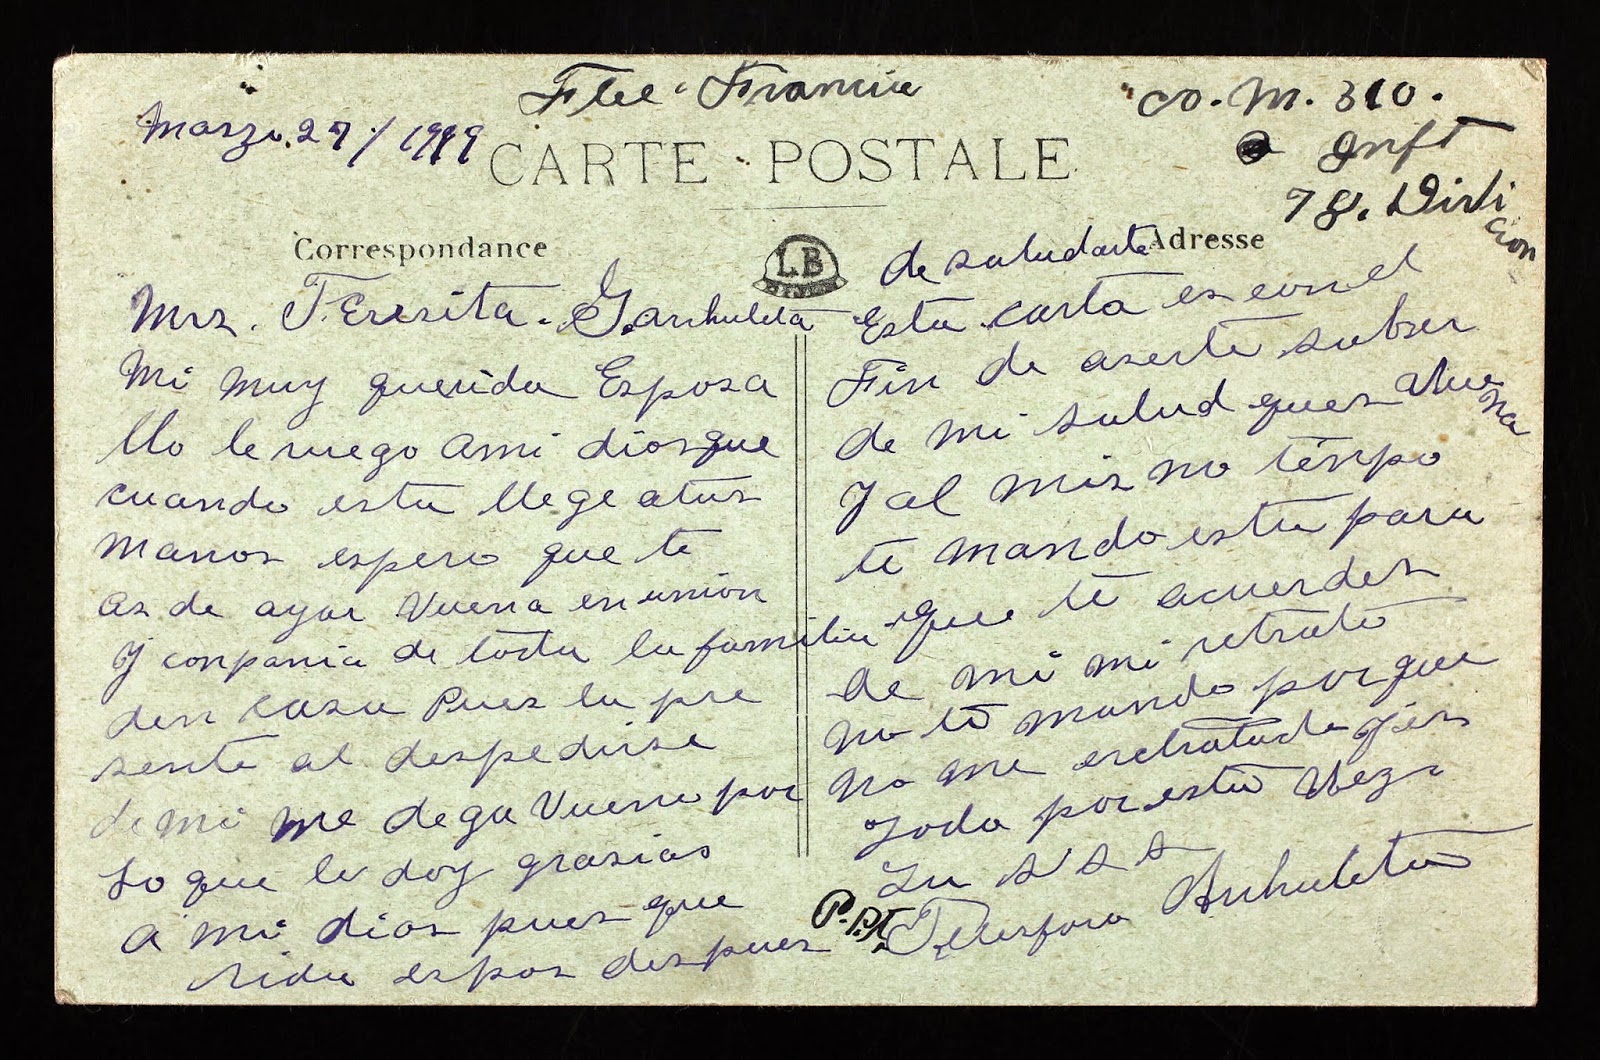 Flee. Francia
Marzo. 27/1919
co. M. 310.
Inft
78. Divi
cion
CARTE POSTALE
Correspondance
Adresse
LB
Mrs. TEresita. G. archuleta
Mi muy querida Esposa
llo le ruego ami dios que
cuando esta llege atus
manos espero que te
as de ayar vuena en union
y conpania de toda la familia
den casa Pues la pre
sente al despedirse
de mi me dega Vueno por
lo que le doy grasias
a mi dios pues que
rida espos despues
de saludarte
Esta carta es con el
Fin de aserte saber
de mi salud ques Vue
na
y al mis mo tenpo
te mando esta para
que te acuerdes
de mi mi retrato
no te mando por que
no me eretratado
por esta Vez
Su S S S
P.P.T. Telesforo Archuleta